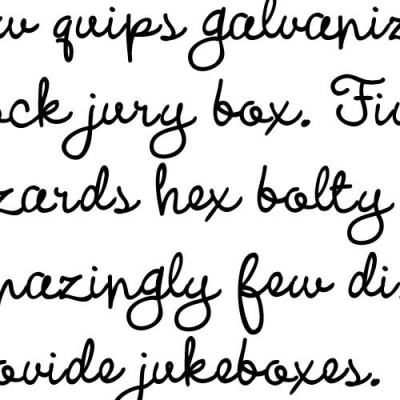 w quips galvaniz
ock jury box. Fiv
zards hex bolty
mazingly few dis
ovide jukeboxes.